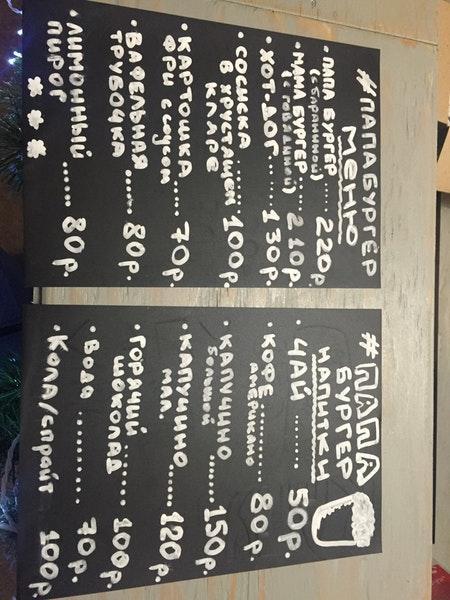 #ПАПАБУРГЕР
МЕНЮ
• ПАПА БУРГЕР ..... 220р.
(с бараниной)
• МАМА БУРГЕР ..... 210р.
(с говядиной)
• ХОТ-ДОГ ...... 130р.
• СОСИСКА
В ХРУСТАЩЕМ 100р.
КЛЯРЕ
• КАРТОШКА
ФРИ с соусом ..... 70р.
• ВАФЕЛЬНАЯ
ТРУБОЧКА ..... 80р.
• ЛИМОННЫЙ
ПИРОГ ..... 80р.
#ПАПА
БУРГЕР
НАПИТКИ
• ЧАЙ ....... 50р.
• КОФЕ ...... 80р.
американо
• КАПУЧИНО ..... 150р.
большой
• КАПУЧИНО ..... 120р.
мал.
• ГОРЯЧИЙ
ШОКОЛАД ..... 100р.
• Вода ....... 70р.
• Кола/спрайт 100р